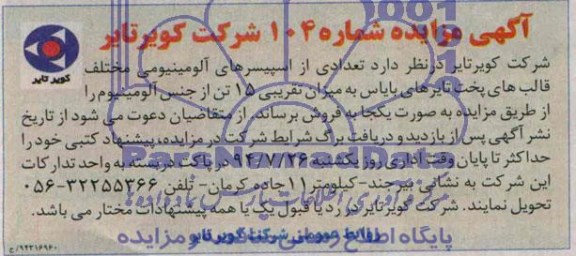 آگهی مزایده شماره ۱۰۴ شرکت کویرتایر
کویر تایر
شرکت کویرتایر درنظر دارد تعدادی از اسپیسرهای آلومینیومی مختلف
قالب های پخت تایرهای بایاس به میزان تقریبی ۱۵ تن از جنس آلومینیوم را
از طریق مزایده به صورت یکجا به فروش برساند. از متقاضیان دعوت می شود از تاریخ
نشر آگهی پس از بازدید و دریافت برگ شرایط شرکت در مزایده، پیشنهاد کتبی خود را
حداکثر تا پایان وقت اداری روز یکشنبه ۹۴/۷/۲۶ در پاکت دربسته به واحد تدارکات
این شرکت به نشانی بیرجند- کیلومتر ۱۱ جاده کرمان- تلفن ۳۲۲۵۵۳۶۶-۰۵۶
تحویل نمایند. شرکت کویرتایر در رد یا قبول یک یا همه پیشنهادات مختار می باشد.
روابط عمومی شرکت کویر تایر
پایگاه اطلاع رسانی مناقصه و مزایده
ParsNamadData
۹۴۲۱۶۹۶۰/ع